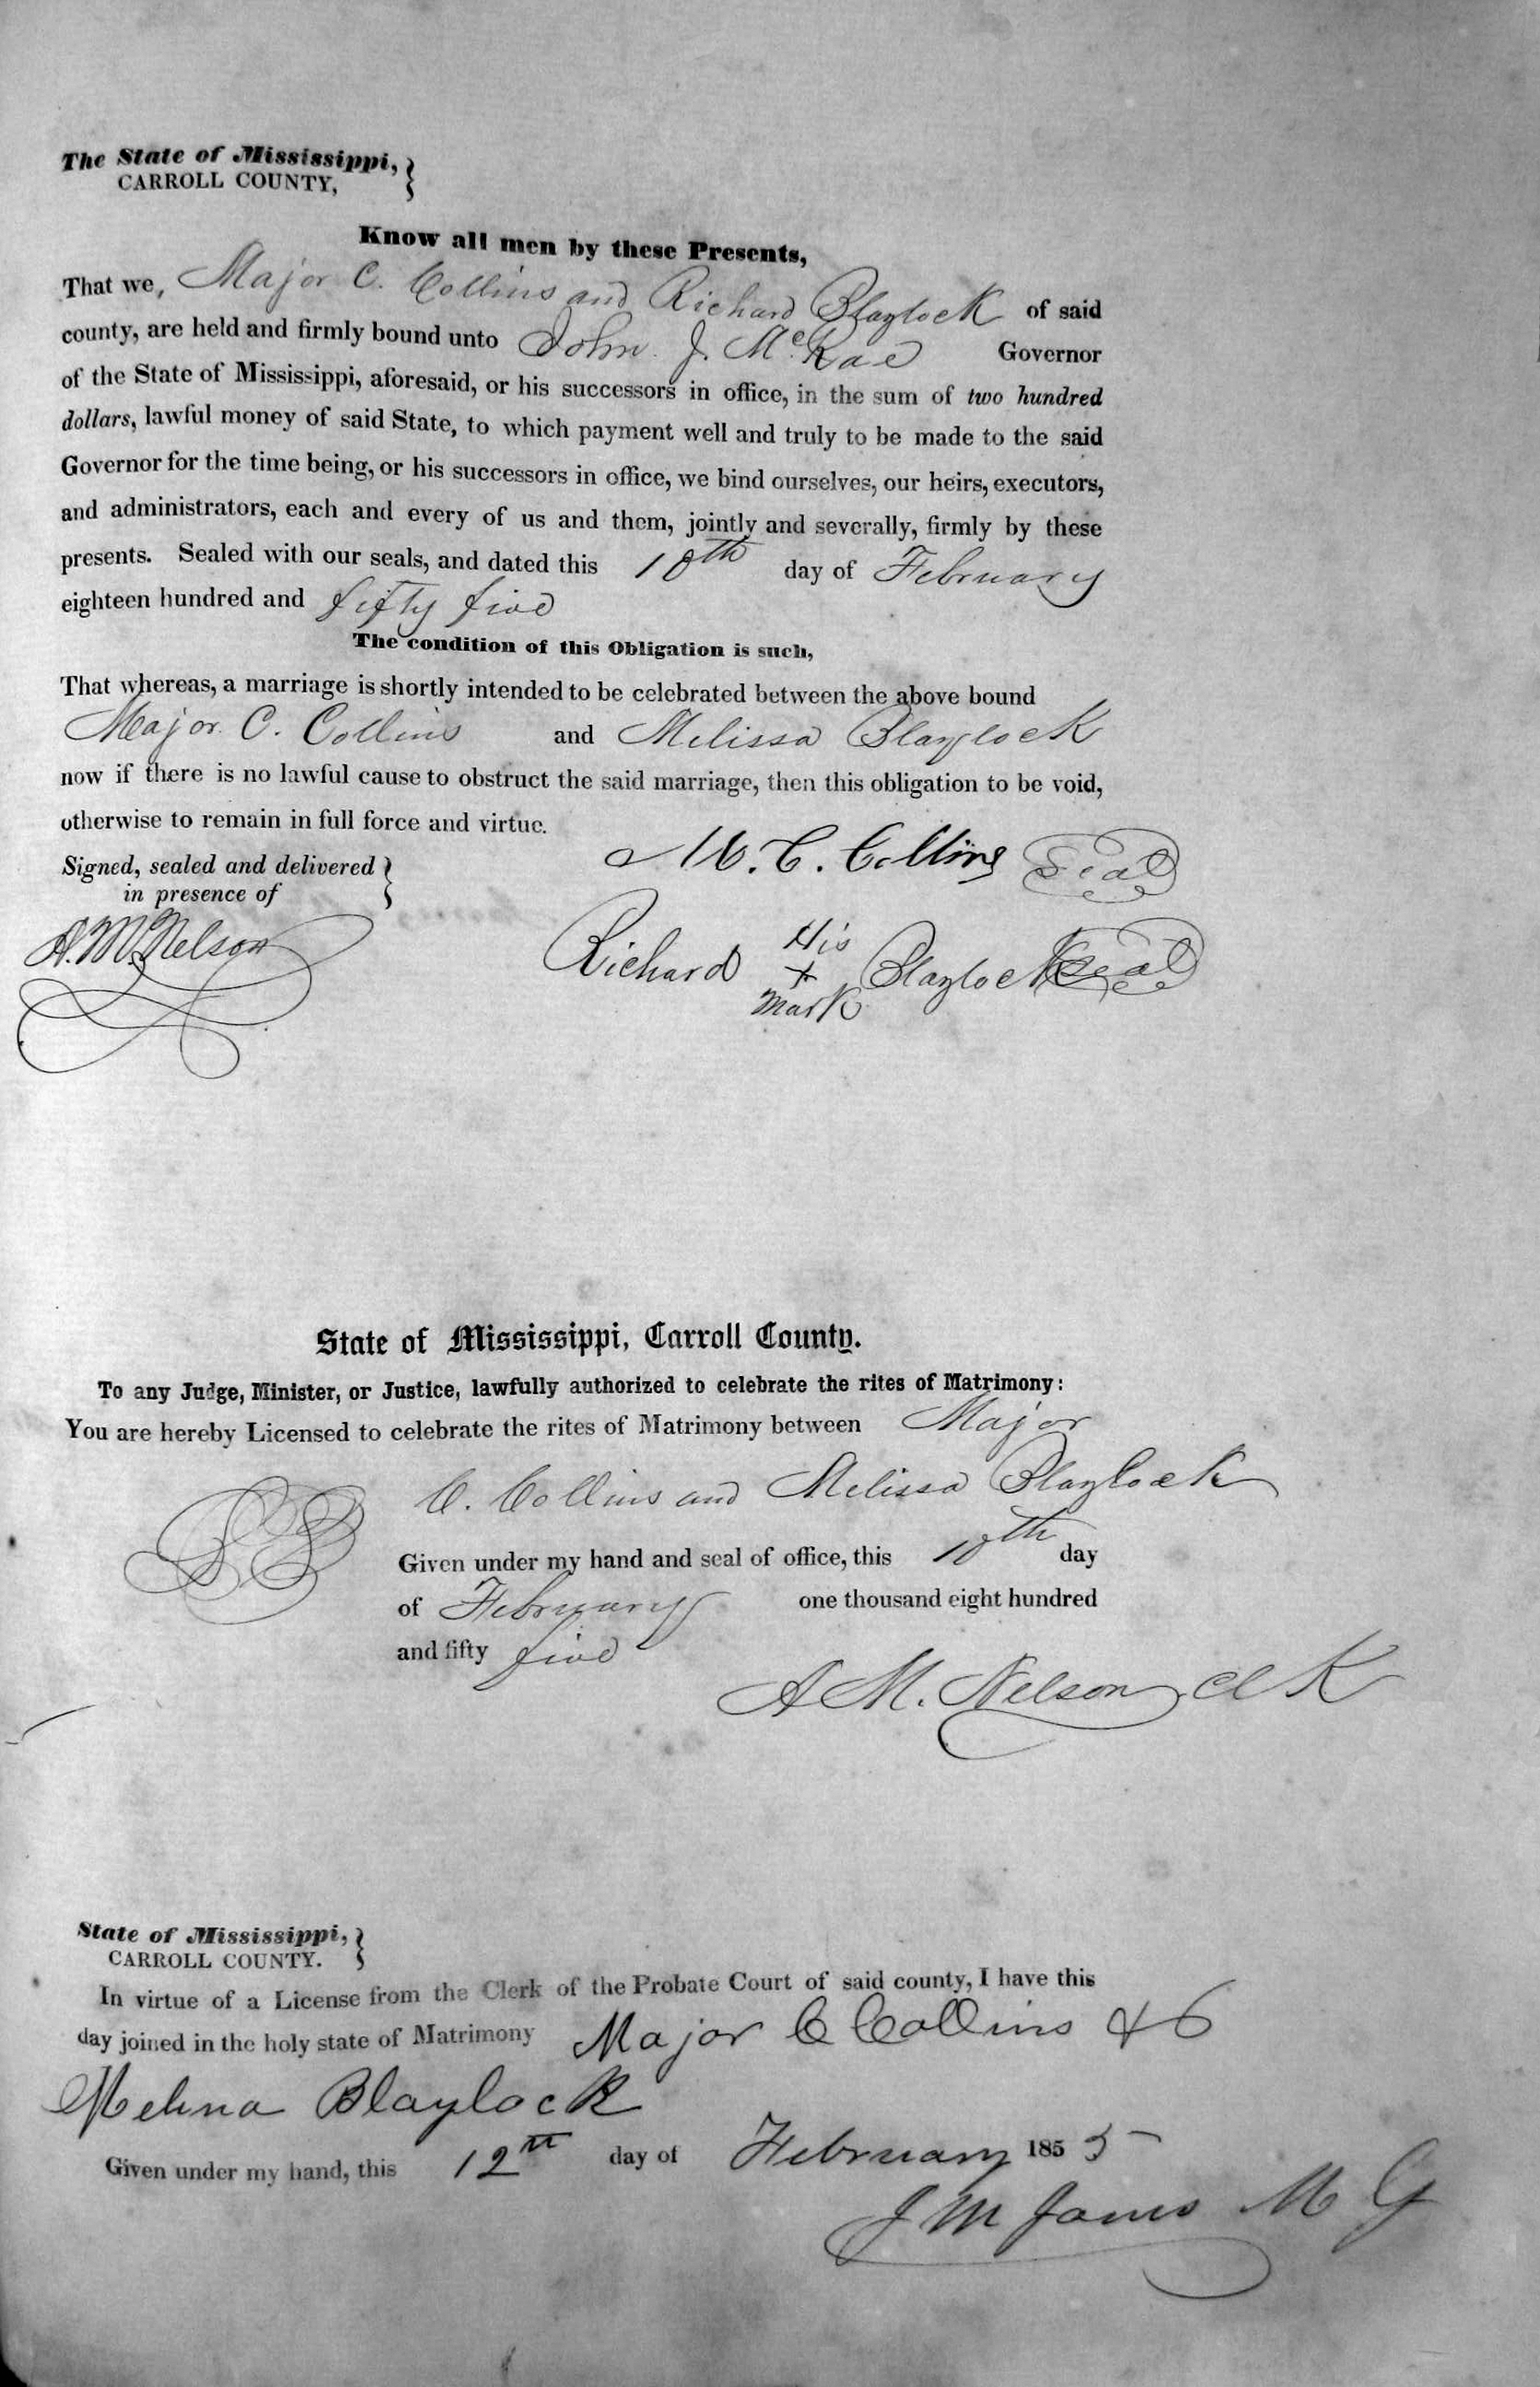 The State of Mississippi,
CARROLL COUNTY,
Know all men by these Presents,
That we, Major C. Collins and Richard Blaylock of said
county, are held and firmly bound unto John J. McRae Governor
of the State of Mississippi, aforesaid, or his successors in office, in the sum of two hundred
dollars, lawful money of said State, to which payment well and truly to be made to the said
Governor for the time being, or his successors in office, we bind ourselves, our heirs, executors,
and administrators, each and every of us and them, jointly and severally, firmly by these
presents. Sealed with our seals, and dated this 10th day of February
eighteen hundred and fifty five
The condition of this Obligation is such,
That whereas, a marriage is shortly intended to be celebrated between the above bound
Major C. Collins and Melissa Blaylock
now if there is no lawful cause to obstruct the said marriage, then this obligation to be void,
otherwise to remain in full force and virtue.
M. C. Collins Seal
Signed, sealed and delivered
in presence of
A. M. Nelson
His
Richard x Blaylock Seal
Mark
State of Mississippi, Carroll County.
To any Judge, Minister, or Justice, lawfully authorized to celebrate the rites of Matrimony:
You are hereby Licensed to celebrate the rites of Matrimony between Major
C. Collins and Melissa Blaylock
Given under my hand and seal of office, this 10th day
of February one thousand eight hundred
and fifty five
A M. Nelson Clk
State of Mississippi,
CARROLL COUNTY.
In virtue of a License from the Clerk of the Probate Court of said county, I have this
day joined in the holy state of Matrimony Major C Collins &
Blaylock
Given under my hand, this 12th day of February 1855
J M M G